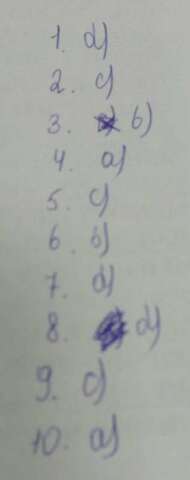 1. d)
2. c)
3. b)
4. a)
5. c)
6. b)
7. d)
8. d)
9. c)
10. a)